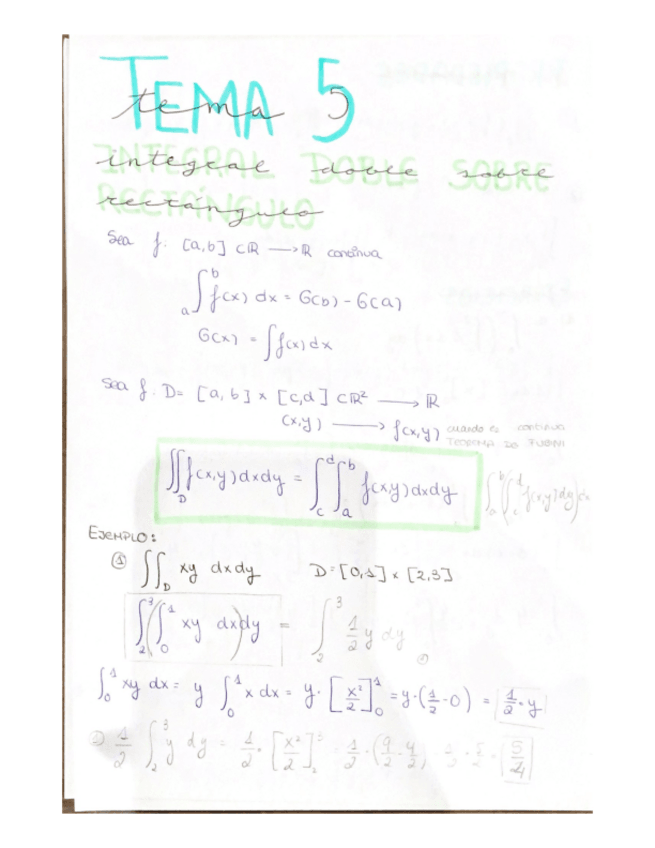 TEMA 5
tema 5
INTEGRAL DOBLE SOBRE
integral doble sobre
RECTÁNGULO
rectángulo
Sea f: [a,b] ⊂ ℝ ⟶ ℝ continua
∫_a^b f(x) dx = G(b) - G(a)
G(x) = ∫ f(x) dx
Sea f: D = [a,b] × [c,d] ⊂ ℝ² ⟶ ℝ
(x,y) ⟶ f(x,y) cuando es continua
TEOREMA DE FUBINI
∬_D f(x,y) dxdy = ∫_c^d ∫_a^b f(x,y) dxdy ∫_a^b (∫_c^d f(x,y) dy) dx
EJEMPLO:
① ∬_D xy dxdy D = [0,1] × [2,3]
∫_2^3 (∫_0^1 xy dx) dy = ∫_2^3 1/2 y dy
∫_0^1 xy dx = y ∫_0^1 x dx = y · [x²/2]_0^1 = y · (1/2 - 0) = 1/2 · y
1/2 ∫_2^3 y dy = 1/2 · [x²/2]_2^3 = 1/2 · (9/2 - 4/2) = 1/2 · 5/2 = 5/4